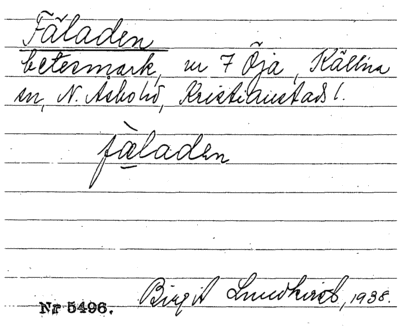 Fäladen
betesmark, nr 7 Öja, Källna
sn, N. Åsbo hd, Kristianstads l.
fä̀laden
Nr 5496.
Birgit Lundkvist, 1938.